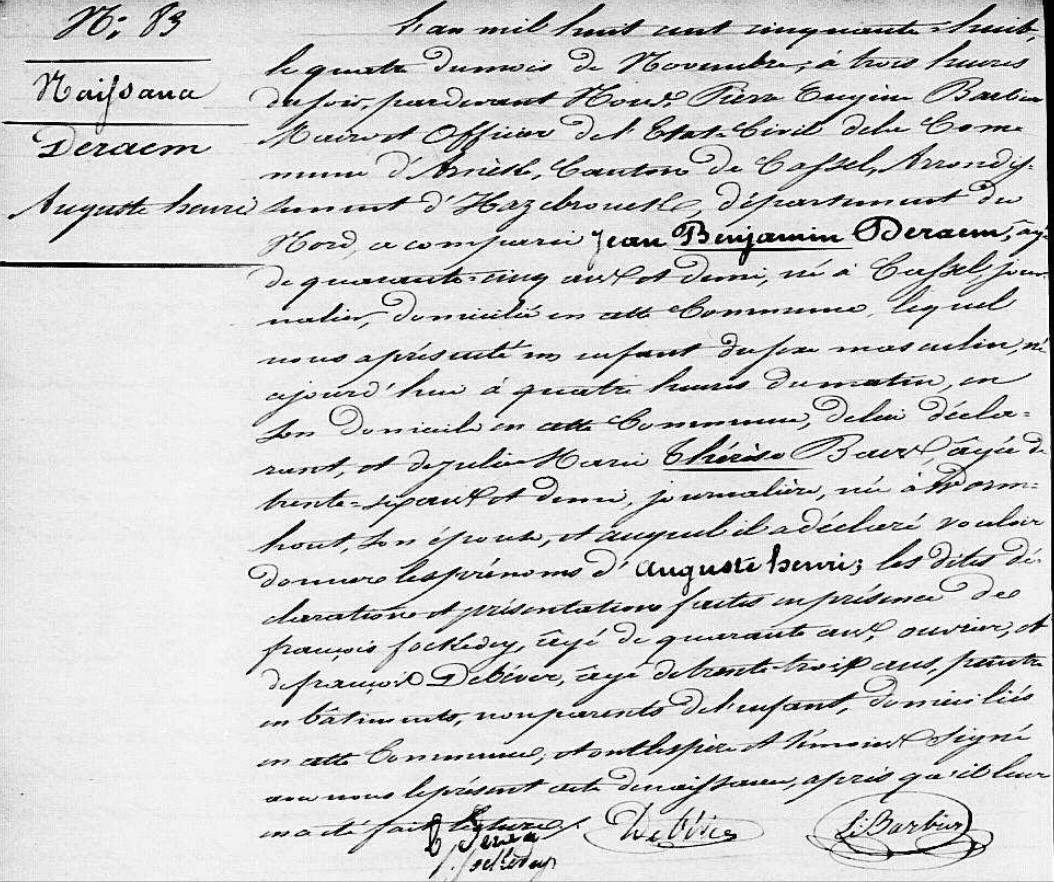 N.° 83
Naissance
Deraem
Auguste henri
L'an mil huit cent cinquante-huit,
le quatre du mois de Novembre, à trois heures
du soir, pardevant Nous, Pierre Eugène Barbier
Maire et Officier de l'Etat-Civil de la Com-
mune d'Arnèke, Canton de Cassel, Arrondis-
sement d'Hazebrouck, département du
Nord, a comparu Jean Benjamin Deraem, âgé
de quarante-cinq ans et demi, né à Cassel, jour-
nalier, domicilié en cette Commune, lequel
nous a présenté un enfant du sexe masculin, né
aujourd'hui à quatre heures du matin, en
son domicile en cette Commune, de lui décla-
rant, et de Julie Marie Thérèse Baux, âgée de
trente-six ans et demi, journalière, née à Worm-
hout, son épouse, et auquel il a déclaré vouloir
donner les prénoms d'auguste henri; les dites dé-
clarations et présentation faites en présence de
françois fockedey, âgé de quarante ans, ouvrier, et
de françois Debéver, âgé de trente-trois ans, peintre
en bâtiments, non parents de l'enfant, domiciliés
en cette Commune, et ont les père et témoins signé
avec nous le présent acte de naissance, après qu'il leur
en a été fait lecture.
f. fockedey
Debéver
E. Barbier